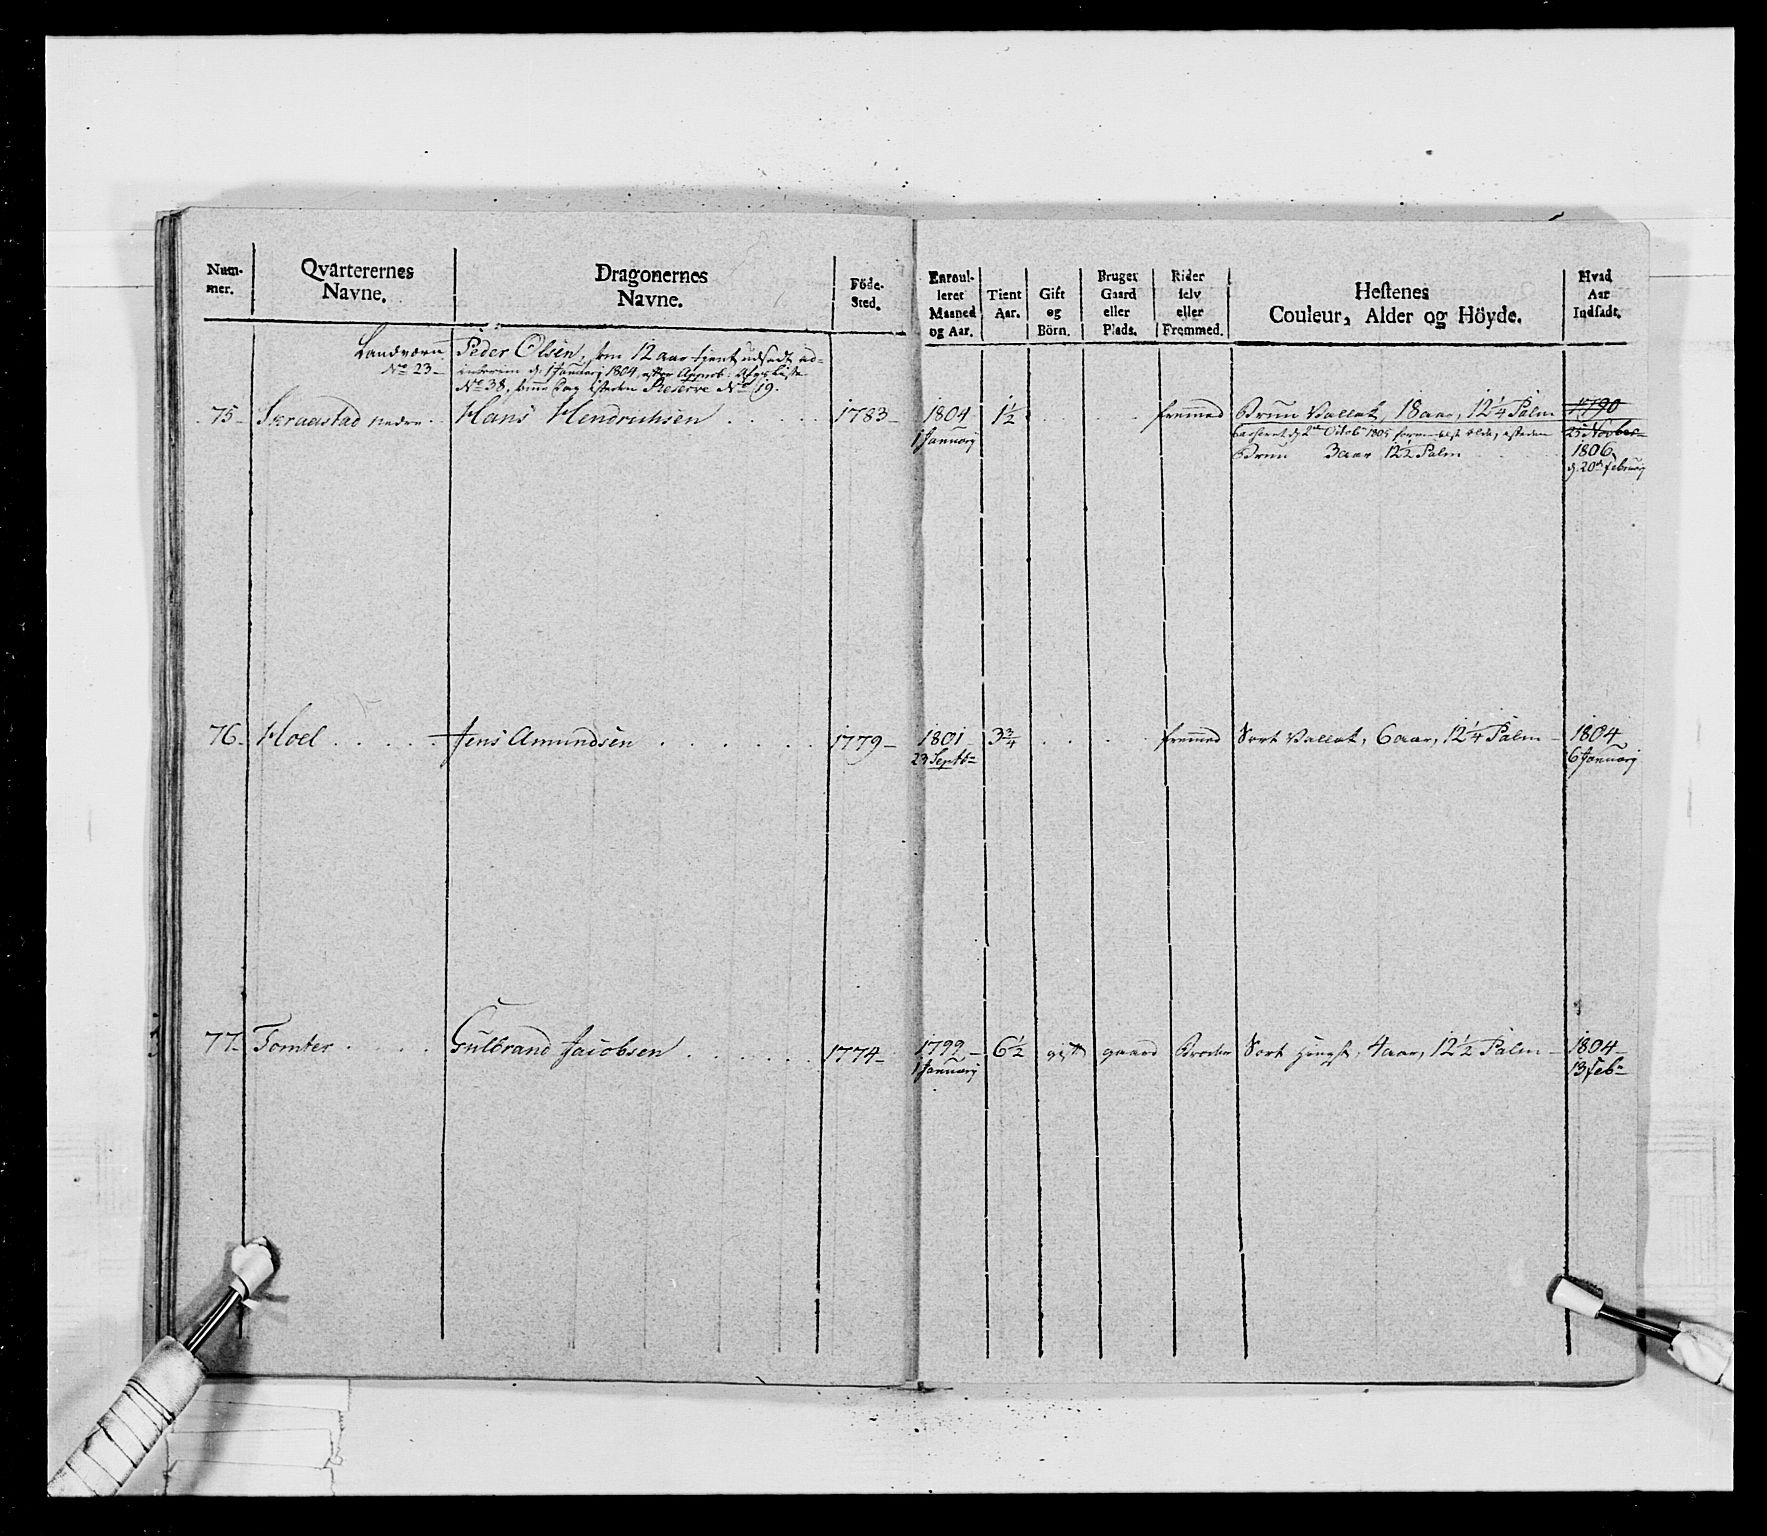 Num-
mer.
Qvarterernes
Navne.
Dragonernes
Navne.
Föde-
Sted.
Enroul-
leret
Maaned
og Aar.
Tient
Aar.
Gift
og
Börn.
Bruger
Gaard
eller
Plads.
Rider
selv
eller
Fremmed.
Hestenes
Couleur, Alder og Höyde.
Hvad
Aar
Indsadt.
Landværn
No 23
Peder Olsen, som 12 aar tient udsadt ad-
interim d. 1 Januarj 1804 efter Approb: Afgs Liste
No 38, samme Dag isteden Reserve No 19.
75 Skraastad nedre Hans Hendrichsen 1783 1804 1½ fremmed Brun Vallak, 18 aar, 12¼ Palm 1790
1 Januarj 2d Octobr 1805 isteden 25 Novber
Brun 3 aar 12½ Palm 1806
d. 20d februarj
76 Hoel Jens Amundsen 1779 1801 3¾ fremed Sort Vallak, 6 aar, 12¼ Palm 1804
23 Septbr 6 Januarj
77 Tomter Gulbrand Jacobsen 1774 1799 6½ gift gaard Broder Sort Hingst, 4 aar, 12½ Palm 1804
1 Januarj 13 febr